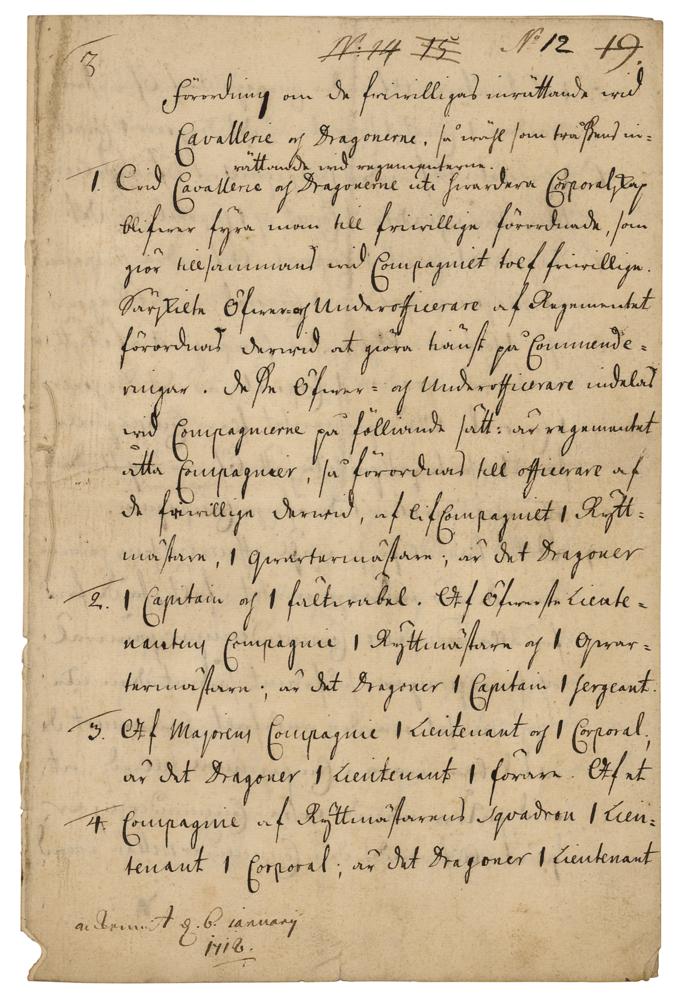 3 N. 14 15 No 12 19.
Förordning om de friwilligas inrättande wid
Cavallerie och Dragonerne, så wähl som trässens in=
rättande wid regementerne.
1. Wid Cavallerie och Dragonerne uti hwardera Corporalskap
blifwer fyra man till friwillige förordnade, som
giör tillsammans wid Compagniet tolf friwillige.
Särskilte Öfwer= och Underofficerare af Regementet
förordnas derwid at giöra tiänst på Commende=
ringar. Desse Öfwer= och Underofficerare indelas
wid Compagnierne på föllliande sätt: är regementet
åtta Compagnier, så förordnas till officerare af
de friwillige derwid, af lifCompagniet 1 Rytt=
mästare, 1 qwartermästare; är det Dragoner
2. 1 Capitain och 1 fältwäbel. Af Öfwerste Lieute=
nantens Compagnie 1 Ryttmästare och 1 Qwar=
termästare; är det Dragoner 1 Capitain 1 sergeant.
3. Af Majorens Compagnie 1 Lieutenant och 1 Corporal;
är det Dragoner 1 Lieutenant 1 förare. Af et
4. Compagnie af Ryttmästarens Squadron 1 Lieu=
tenant 1 Corporal; är det Dragoner 1 Lieutenant
d. 6. january
1718.